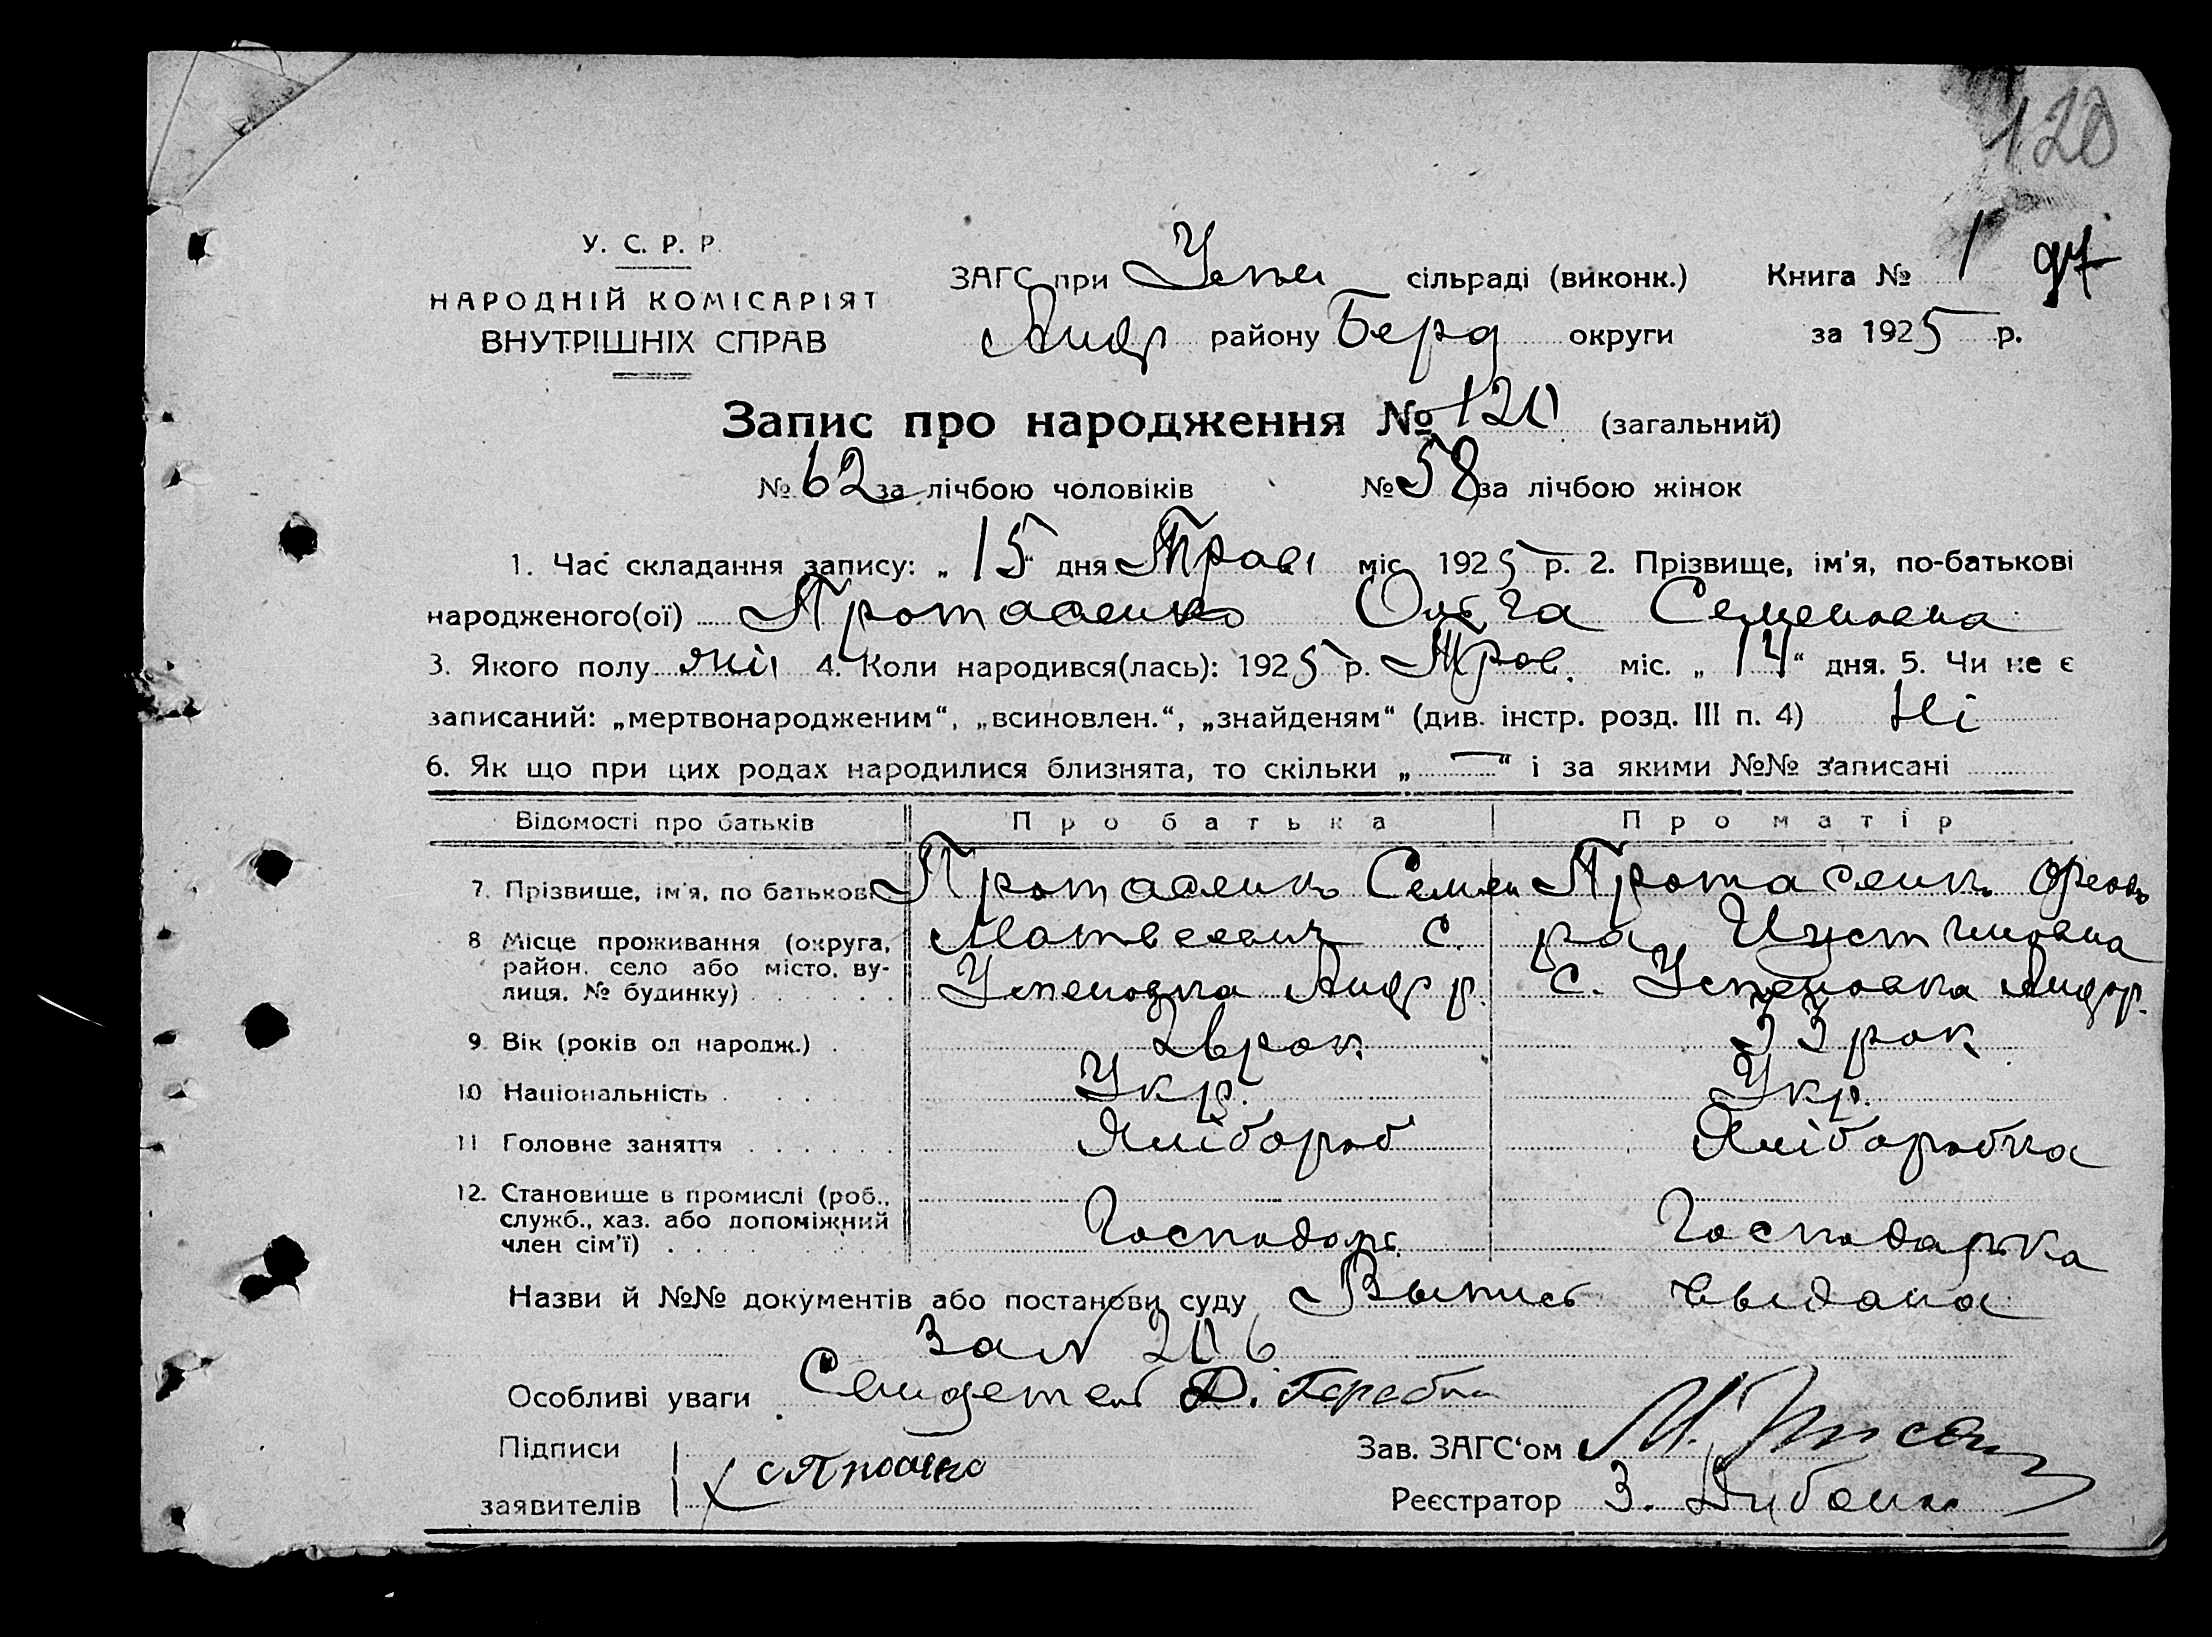 120
У. С. Р. Р.
НАРОДНІЙ КОМІСАРІЯТ
ВНУТРІШНІХ СПРАВ
ЗАГС при Успен сільраді (виконк.) Книга № 1 97
Андр району Берд округи за 1925 р.
Запис про народження № 120 (загальний)
№ 62 за лічбою чоловіків № 58 за лічбою жінок
1. Час складання запису: „15“ дня Траві міс. 1925 р. 2. Прізвище, ім'я, по-батькові
народженого(ої) Протасенко Ольга Семеновна
3. Якого полу жін 4. Коли народився(лась): 1925 р. Трав. міс. „14“ дня. 5. Чи не є
записаний: „мертвонародженим“, „всиновлен.“, „знайденям“ (див. інстр. розд. III п. 4) Ні
6. Як що при цих родах народилися близнята, то скільки „—“ і за якими №№ записані
Відомості про батьків Про батька Про матір
7. Прізвище, ім'я, по батькові Протасенко Семен Протасенко
8 Місце проживання (округа, Матвеевич с.
район, село або місто, ву- Успеновка Андр р. с. Успеновка Андр р.
лиця, № будинку)
9. Вік (років од народж.) 33 рок
10 Національність Укр. Укр.
11 Головне заняття Хлібороб Хліборобка
12. Становище в промислі (роб.,
служб., хаз. або допоміжний Господарь Господарька
член сім'ї)
Назви й №№ документів або постанови суду Выпись выдана
за № 206
Особливі уваги Свидетель Д.
Підписи Зав. ЗАГС'ом М.
заявителів Реєстратор З.